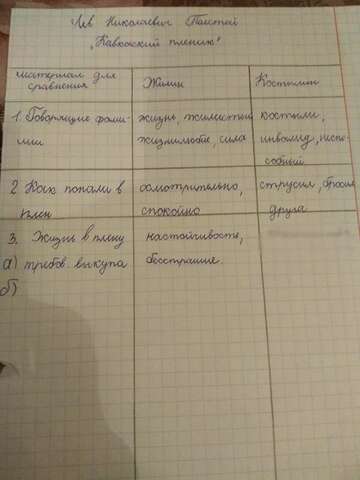 Лев Николаевич Толстой
„Кавказский пленник"
материал для сравнения | Жилин | Костылин
1. Говорящие фами- | жизнь, жилистый | костыли,
лии | жизнелюбие, сила | инвалид, неспо-
собный
2 Как попали в | осмотрительно, | струсил, бросил
плен | спокойно | друга
3. Жизнь в плену | настойчивость,
а) требов. выкупа | бесстрашие
б)